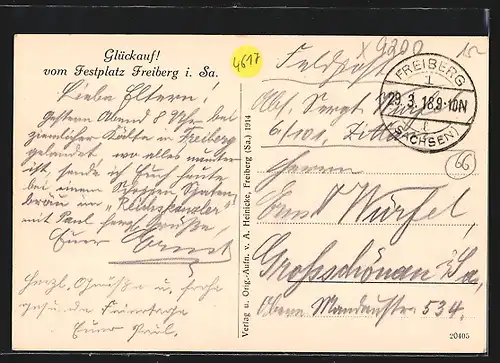 Glückauf!
vom Festplatz Freiberg i. Sa.
4617
X 9200
15-
Liebe Eltern!
Gestern Abend 8 Uhr bei
ziemlicher Kälte in Freiberg
gelandet wo alles munter
ist, sende ich Euch heute
bei einem Spaten-
bräu im „Reichskanzler"
mit Paul herzl. Grüße,
Euer Ernst
Herzl. Grüße u. frohe
gesunde Feiertage
Euer Paul.
Verlag u. Orig.-Aufn. v. A. Heinicke, Freiberg (Sa.) 1914
Feldpost
FREIBERG
1
29.3.18.9-10N
(SACHSEN)
Abs. Sergt. Würfel
6/102, Zittau
66
Herrn
Ernst Würfel,
Grosschönau i/Sa,
Obere Mandaustr 534.
20405